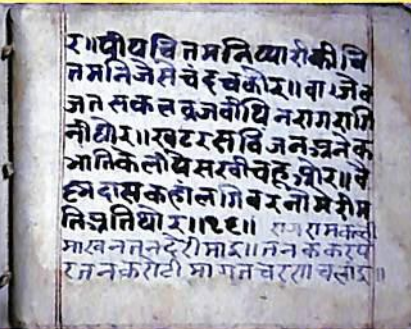 र॥पीयचितमनिप्यारीकीचि
तमनिजैसेचंदचकोर॥बाजैब
जतसकलब्रजबीथिनरागरागि
नीघोर॥षटरसबिंजनअनेक
भातिकेलीयेसखीचहूओर॥
दासकहालगिबरनोमेरीम
तिअतिथोर॥१६॥ रागरामकली
माखनतनदेरीमाइ॥तनककरपे
रतनकरोटीमागतचरणचलाइ॥